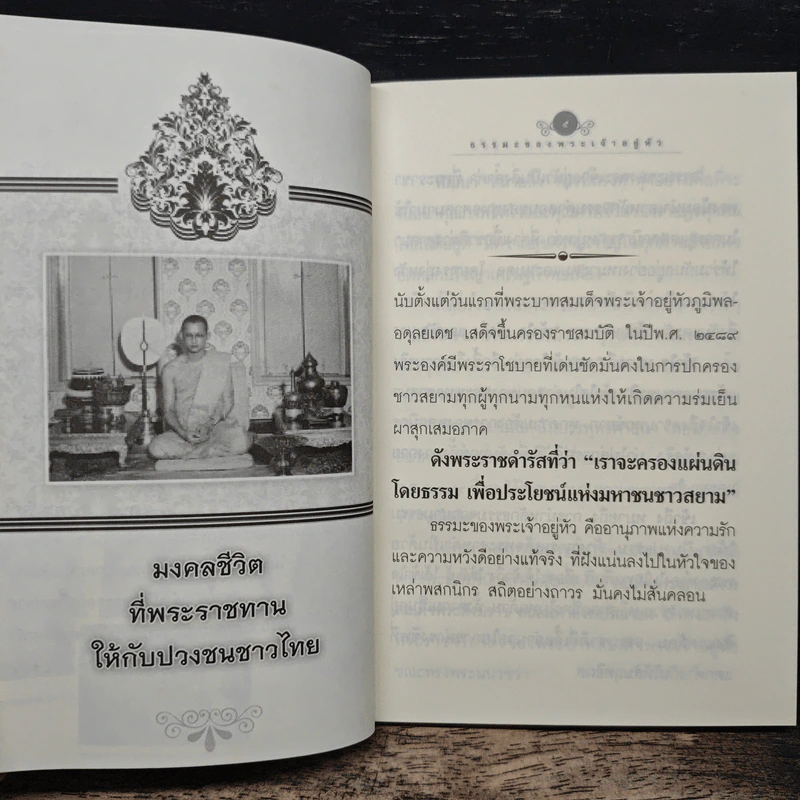 มงคลชีวิต
ที่พระราชทาน
ให้กับปวงชนชาวไทย
ธรรมะของพระเจ้าอยู่หัว
นับตั้งแต่วันแรกที่พระบาทสมเด็จพระเจ้าอยู่หัวภูมิพล-
อดุลยเดช เสด็จขึ้นครองราชสมบัติ ในปีพ.ศ. ๒๔๘๙
พระองค์มีพระราโชบายที่เด่นชัดมั่นคงในการปกครอง
ชาวสยามทุกผู้ทุกนามทุกหนแห่งให้เกิดความร่มเย็น
ผาสุกเสมอภาค
ดังพระราชดำรัสที่ว่า “เราจะครองแผ่นดิน
โดยธรรม เพื่อประโยชน์แห่งมหาชนชาวสยาม”
ธรรมะของพระเจ้าอยู่หัว คืออานุภาพแห่งความรัก
และความหวังดีอย่างแท้จริง ที่ฝังแน่นลงไปในหัวใจของ
เหล่าพสกนิกร สถิตอย่างถาวร มั่นคงไม่สั่นคลอน